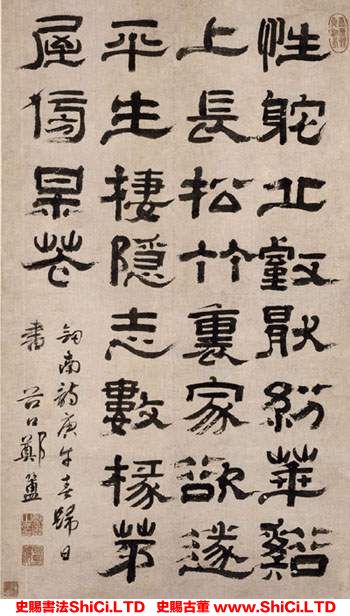 性躭丘壑厭紛華谿
上長松竹裏家欲遂
平生棲隱志數椽茅
屋傍某花
劍南詩庚午春歸日
書 谷口鄭簠
史賜書法ShiCi.LTD 史賜古董 www.ShiCi.LTD